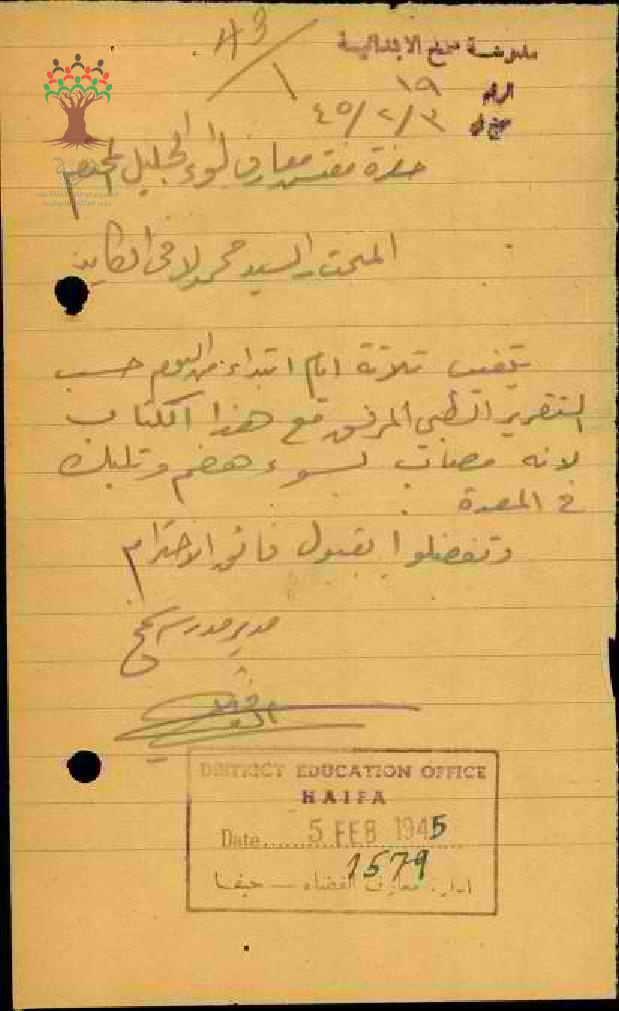 43/1
مدرسة سمخ الابتدائية
الرقم ١٩
سمخ في ٤٥/٢/٣
حضرة مفتش معارف لواء الجليل المحترم
السيد محمد لافي الكايد
يتغيب ثلاثة ايام ابتداء من اليوم حسب
التقرير الطبي المرفق مع هذا الكتاب
لانه مصاب بسوء هضم وتلبك
في المعدة
وتفضلوا بقبول فائق الاحترام
مدير مدرسة سمخ
DISTRICT EDUCATION OFFICE
HAIFA
Date 5 FEB 1945
1579
ادارة معارف القضاء — حيفا